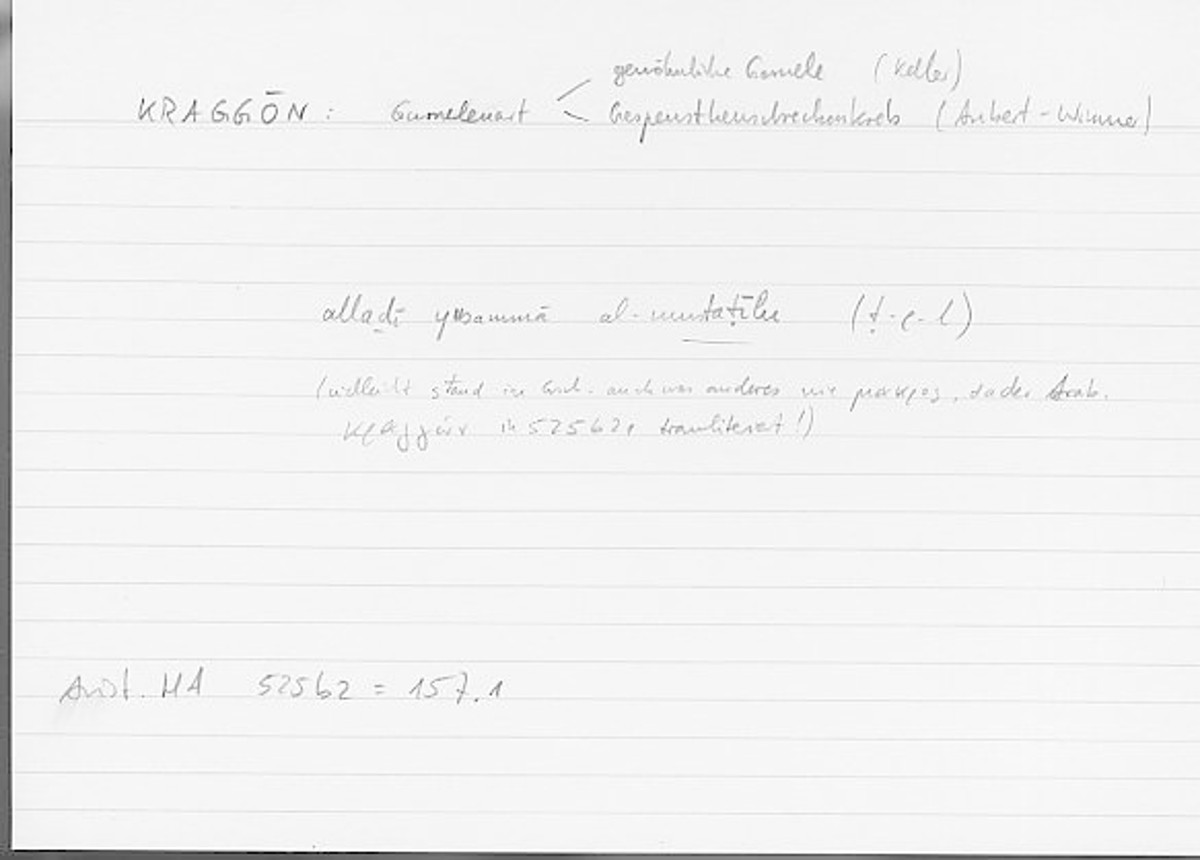 gewöhnliche Garnele (Keller)
KRAGGŌN : Garnelenart < Gespenstheuschreckenkrebs (Aubert-Wimmer)
allaḏī yusammā al-mustaṭīlu (ṭ-w-l)
(vielleicht stand im Griech. auch was anderes wie μακρος, da der Arab.
κραγγών in 525b21 transliteriert!)
Arist. HA 525b2 = 157.1